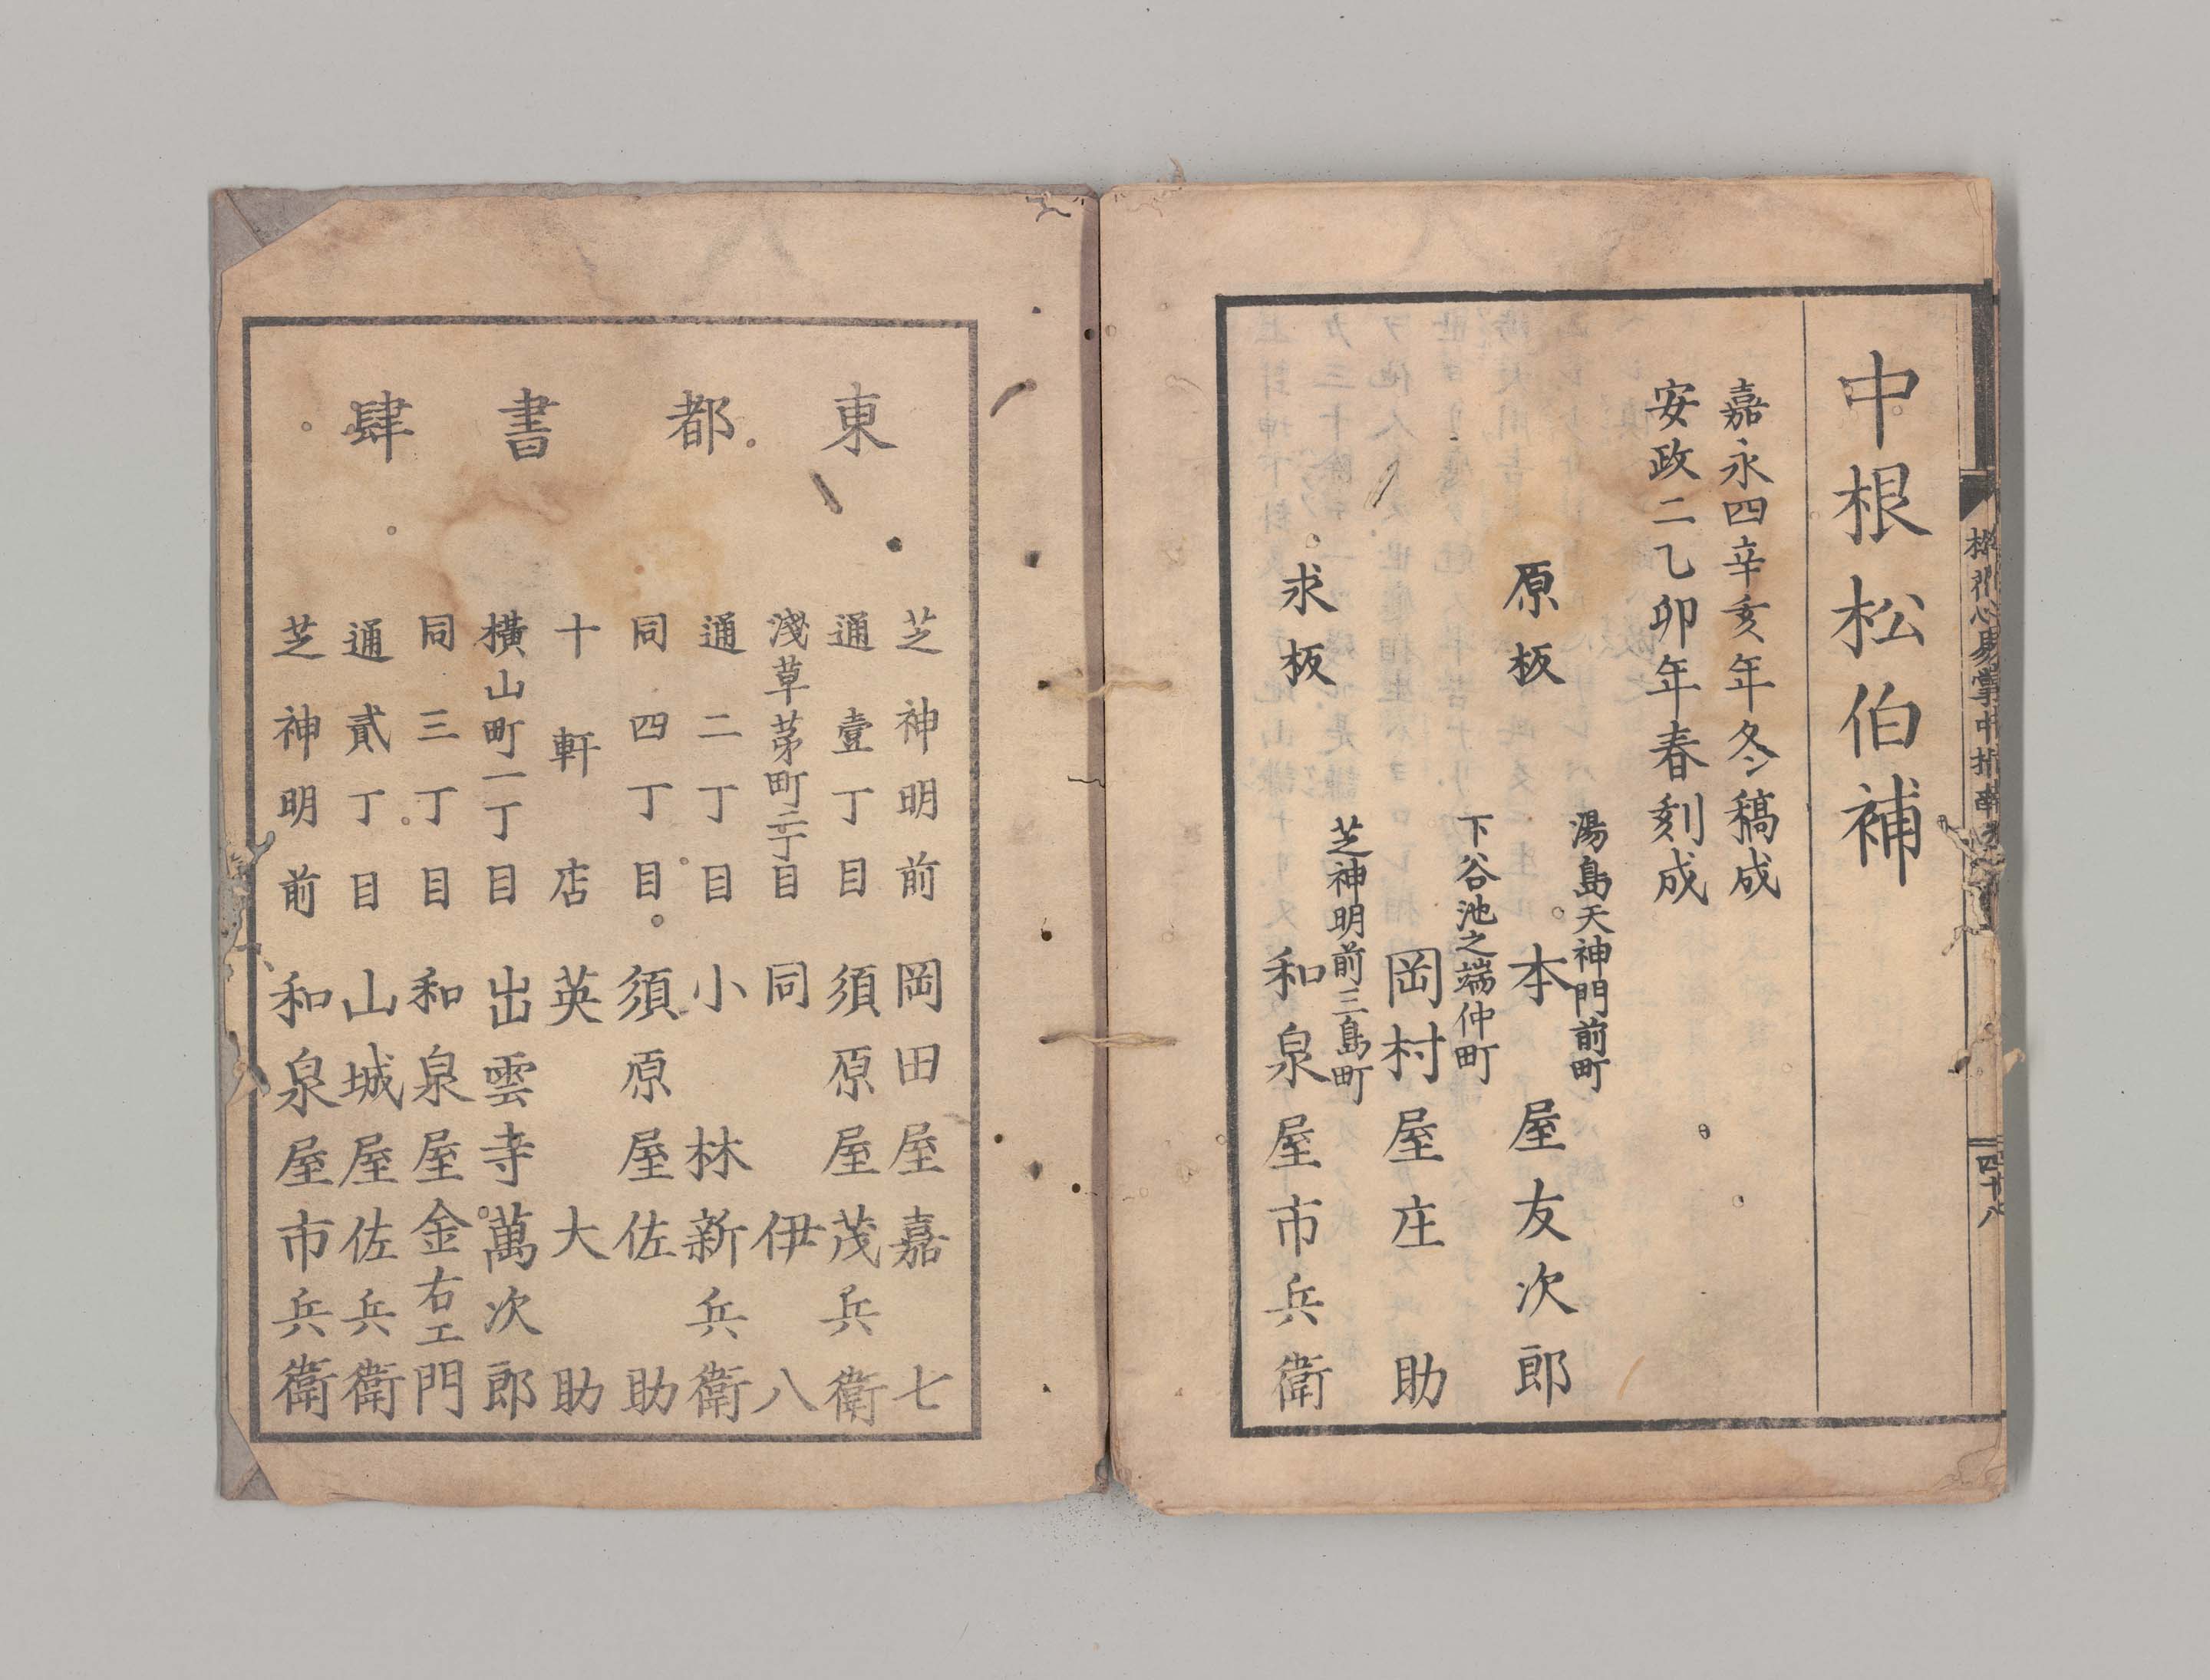 中根松伯補
嘉永四辛亥年冬稿成
安政二乙卯年春刻成
原板
湯島天神門前町
本屋友次郎
下谷池之端仲町
岡村屋庄助
求板
芝神明前三島町
和泉屋市兵衛
四十八
東都書肆
芝神明前 岡田屋嘉七
通壹丁目 須原屋茂兵衛
淺草茅町二丁目 同伊八
通二丁目 小林新兵衛
同四丁目 須原屋佐助
十軒店 英大助
橫山町一丁目 出雲寺萬次郎
同三丁目 和泉屋金右エ門
通貳丁目 山城屋佐兵衛
芝神明前 和泉屋市兵衛